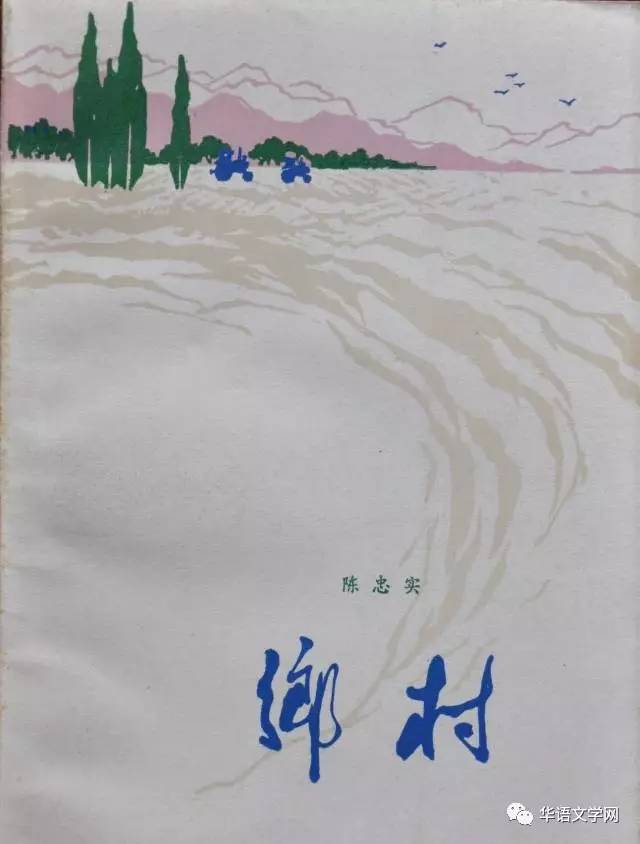 陈忠实
鄉村
华语文学网